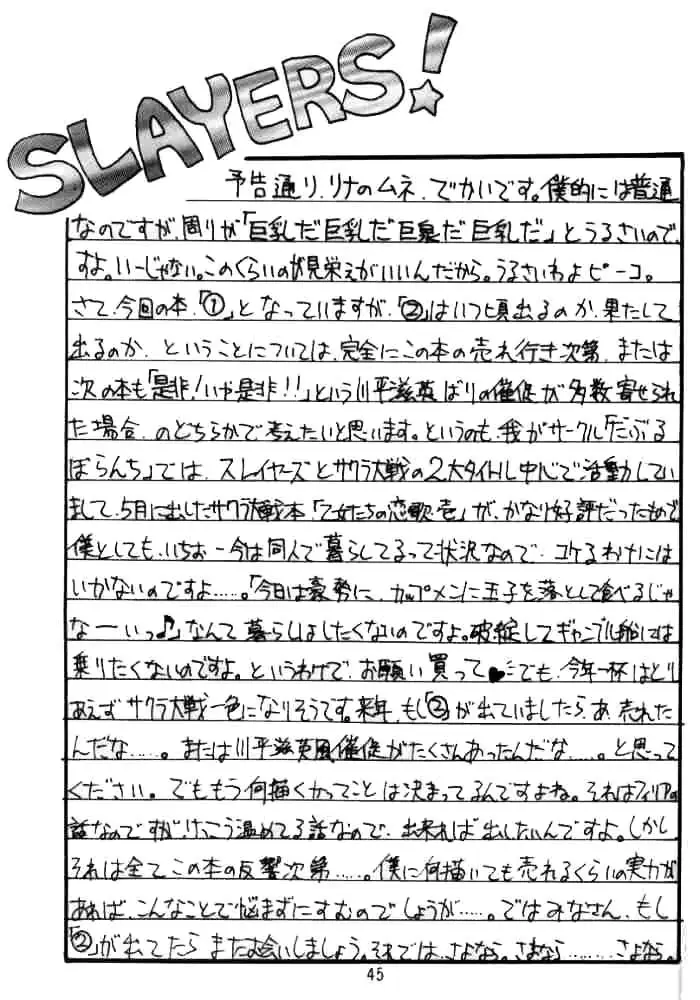 SLAYERS!
予告通り、リナのムネ、でかいです。僕的には普通
なのですが、周りが「巨乳だ巨乳だ巨泉だ巨乳だ」とうるさいので
すよ。いーじゃない。このくらいのが見栄えがいいんだから。うるさいわよピーコ。
さて、今回の本、「①」となっていますが、「②」はいつ頃出るのか、果たして
出るのか、ということについては、完全にこの本の売れ行き次第、または
次の本も「是非!いや是非!!」という川平滋英ばりの催促が多数寄せられ
た場合、のどちらかで考えたいと思います。というのも、我がサークル「だぶる
ぼらんち」では、スレイヤーズとサクラ大戦の2大タイトル中心で活動してい
まして、5月に出したサクラ大戦本「乙女たちの恋歌・壱」が、かなり好評だったもので
僕としても、いちおー今は同人で暮らしてるって状況なので、コケるわけには
いかないのですよ……。「今日は豪勢に、カップメンに玉子を落として食べるじゃ
なーいっ♪」なんて暮らしはしたくないのですよ。破綻してギャンブル船には
乗りたくないのですよ。というわけで、お願い買って♥…でも、今年一杯はとり
あえずサクラ大戦一色になりそうです。来年、もし「②」が出ていましたら、あ、売れた
んだな……。または川平滋英風催促がたくさんあったんだな……。と思って
ください。でももう何描くかってことは決まってるんですよね。それはフィリアの
話なのですが、けっこう温めてる話なので、出来れば出したいんですよ。しかし
それは全てこの本の反響次第……。僕に何描いても売れるくらいの実力が
あれば、こんなことで悩まずにすむのでしょうが……。ではみなさん、もし
「②」が出てたらまたお会いしましょう。それでは、さよなら。さよなら………さよなら。
45